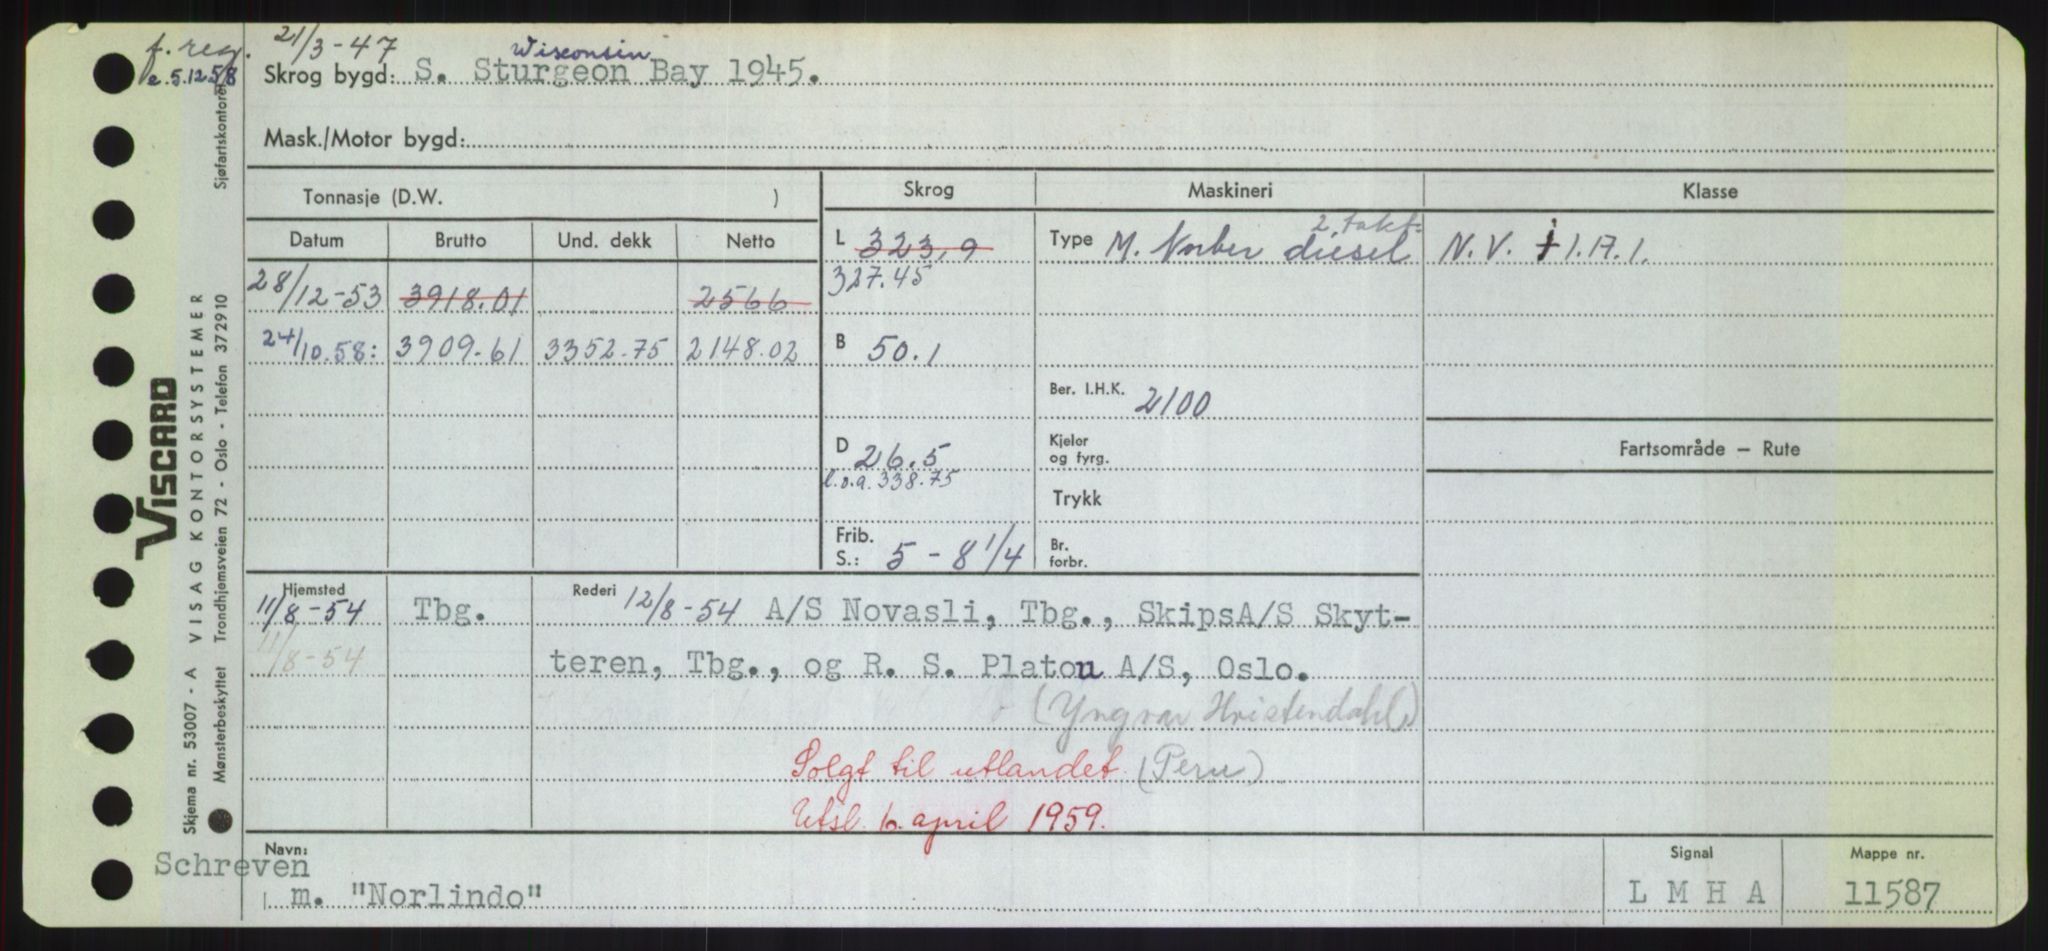 f. reg. 21/3-47
e. 5.12.58
Wisconsin
Skrog bygd: S. Sturgeon Bay 1945.
Mask./Motor bygd:
Tonnasje (D.W. )
Skrog
Maskineri
Klasse
Datum Brutto Und. dekk Netto
28/12-53 3918.01 2566
24/10.58: 3909.61 3352.75 2148.02
L 323,9
327.45
B 50.1
D 26.5
l.o.a. 338.75
Frib.
S.: 5 - 8 1/4
2. takt.
Type M. diesel
Ber. I.H.K. 2100
Kjeler
og fyrg.
Trykk
Br.
forbr.
N.V. 1.17.1.
Fartsområde – Rute
Hjemsted
11/8-54 Tbg.
11/8-54
Rederi 12/8-54 A/S Novasli, Tbg., SkipsA/S Skyt-
teren, Tbg., og R. S. Platou A/S, Oslo.
(Yngvar Hvistendahl)
Solgt til utlandet. (Peru)
Utsl. 6. april 1959.
Navn:
Schreven
m. "Norlindo"
Signal
L M H A
Mappe nr.
11587
VISCARD
Skjema nr. 53007 - A VISAG KONTORSYSTEMER
Mønsterbeskyttet Trondhjemsveien 72 - Oslo - Telefon 372910
Sjøfartskontoret